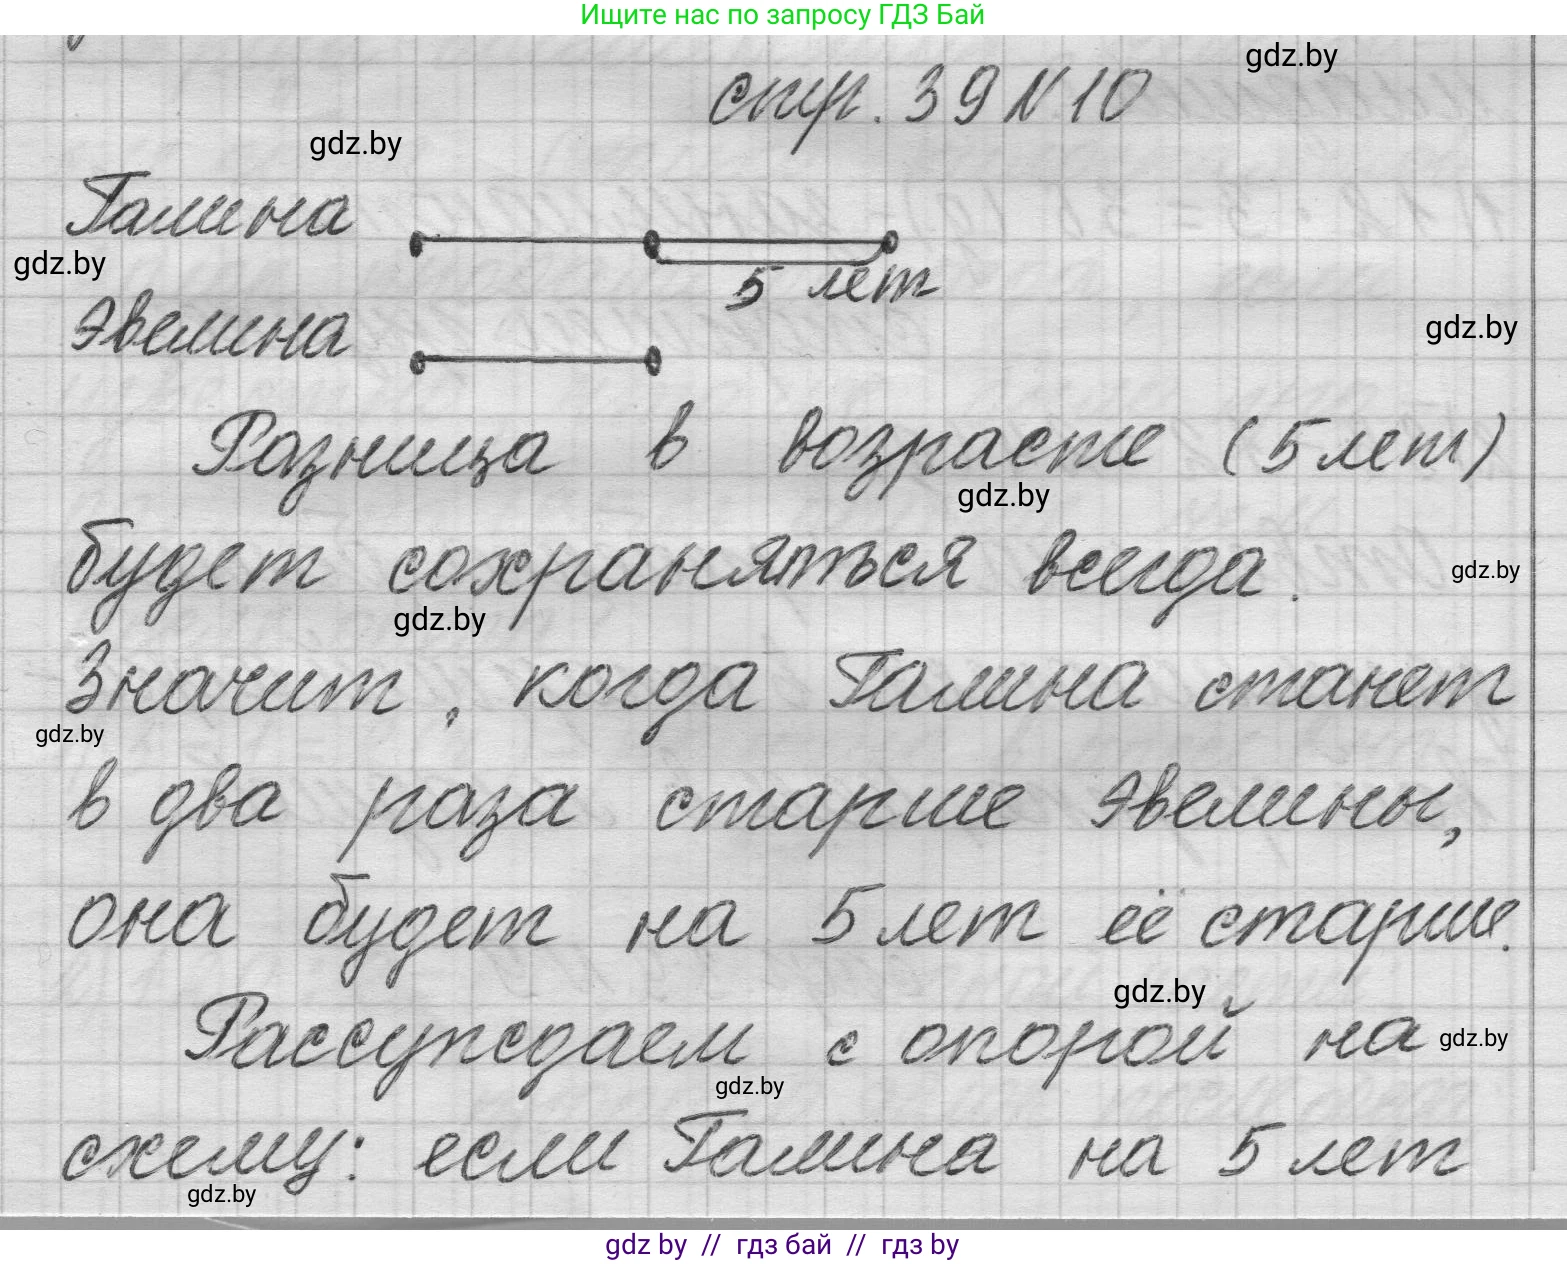 Ищите нас по запросу ГДЗ Бай
gdz.by
стр. 39 N 10
gdz.by
Галина
gdz.by
5 лет
Эвелина
gdz.by
Разница в возрасте (5 лет)
gdz.by
будет сохраняться всегда.
gdz.by
gdz.by
Значит, когда Галина станет
gdz.by
в два раза старше Эвелины,
она будет на 5 лет её старше.
gdz.by
Рассуждаем с опорой на
gdz.by
gdz.by
схему: если Галина на 5 лет
gdz.by
gdz by // гдз бай // гдз by